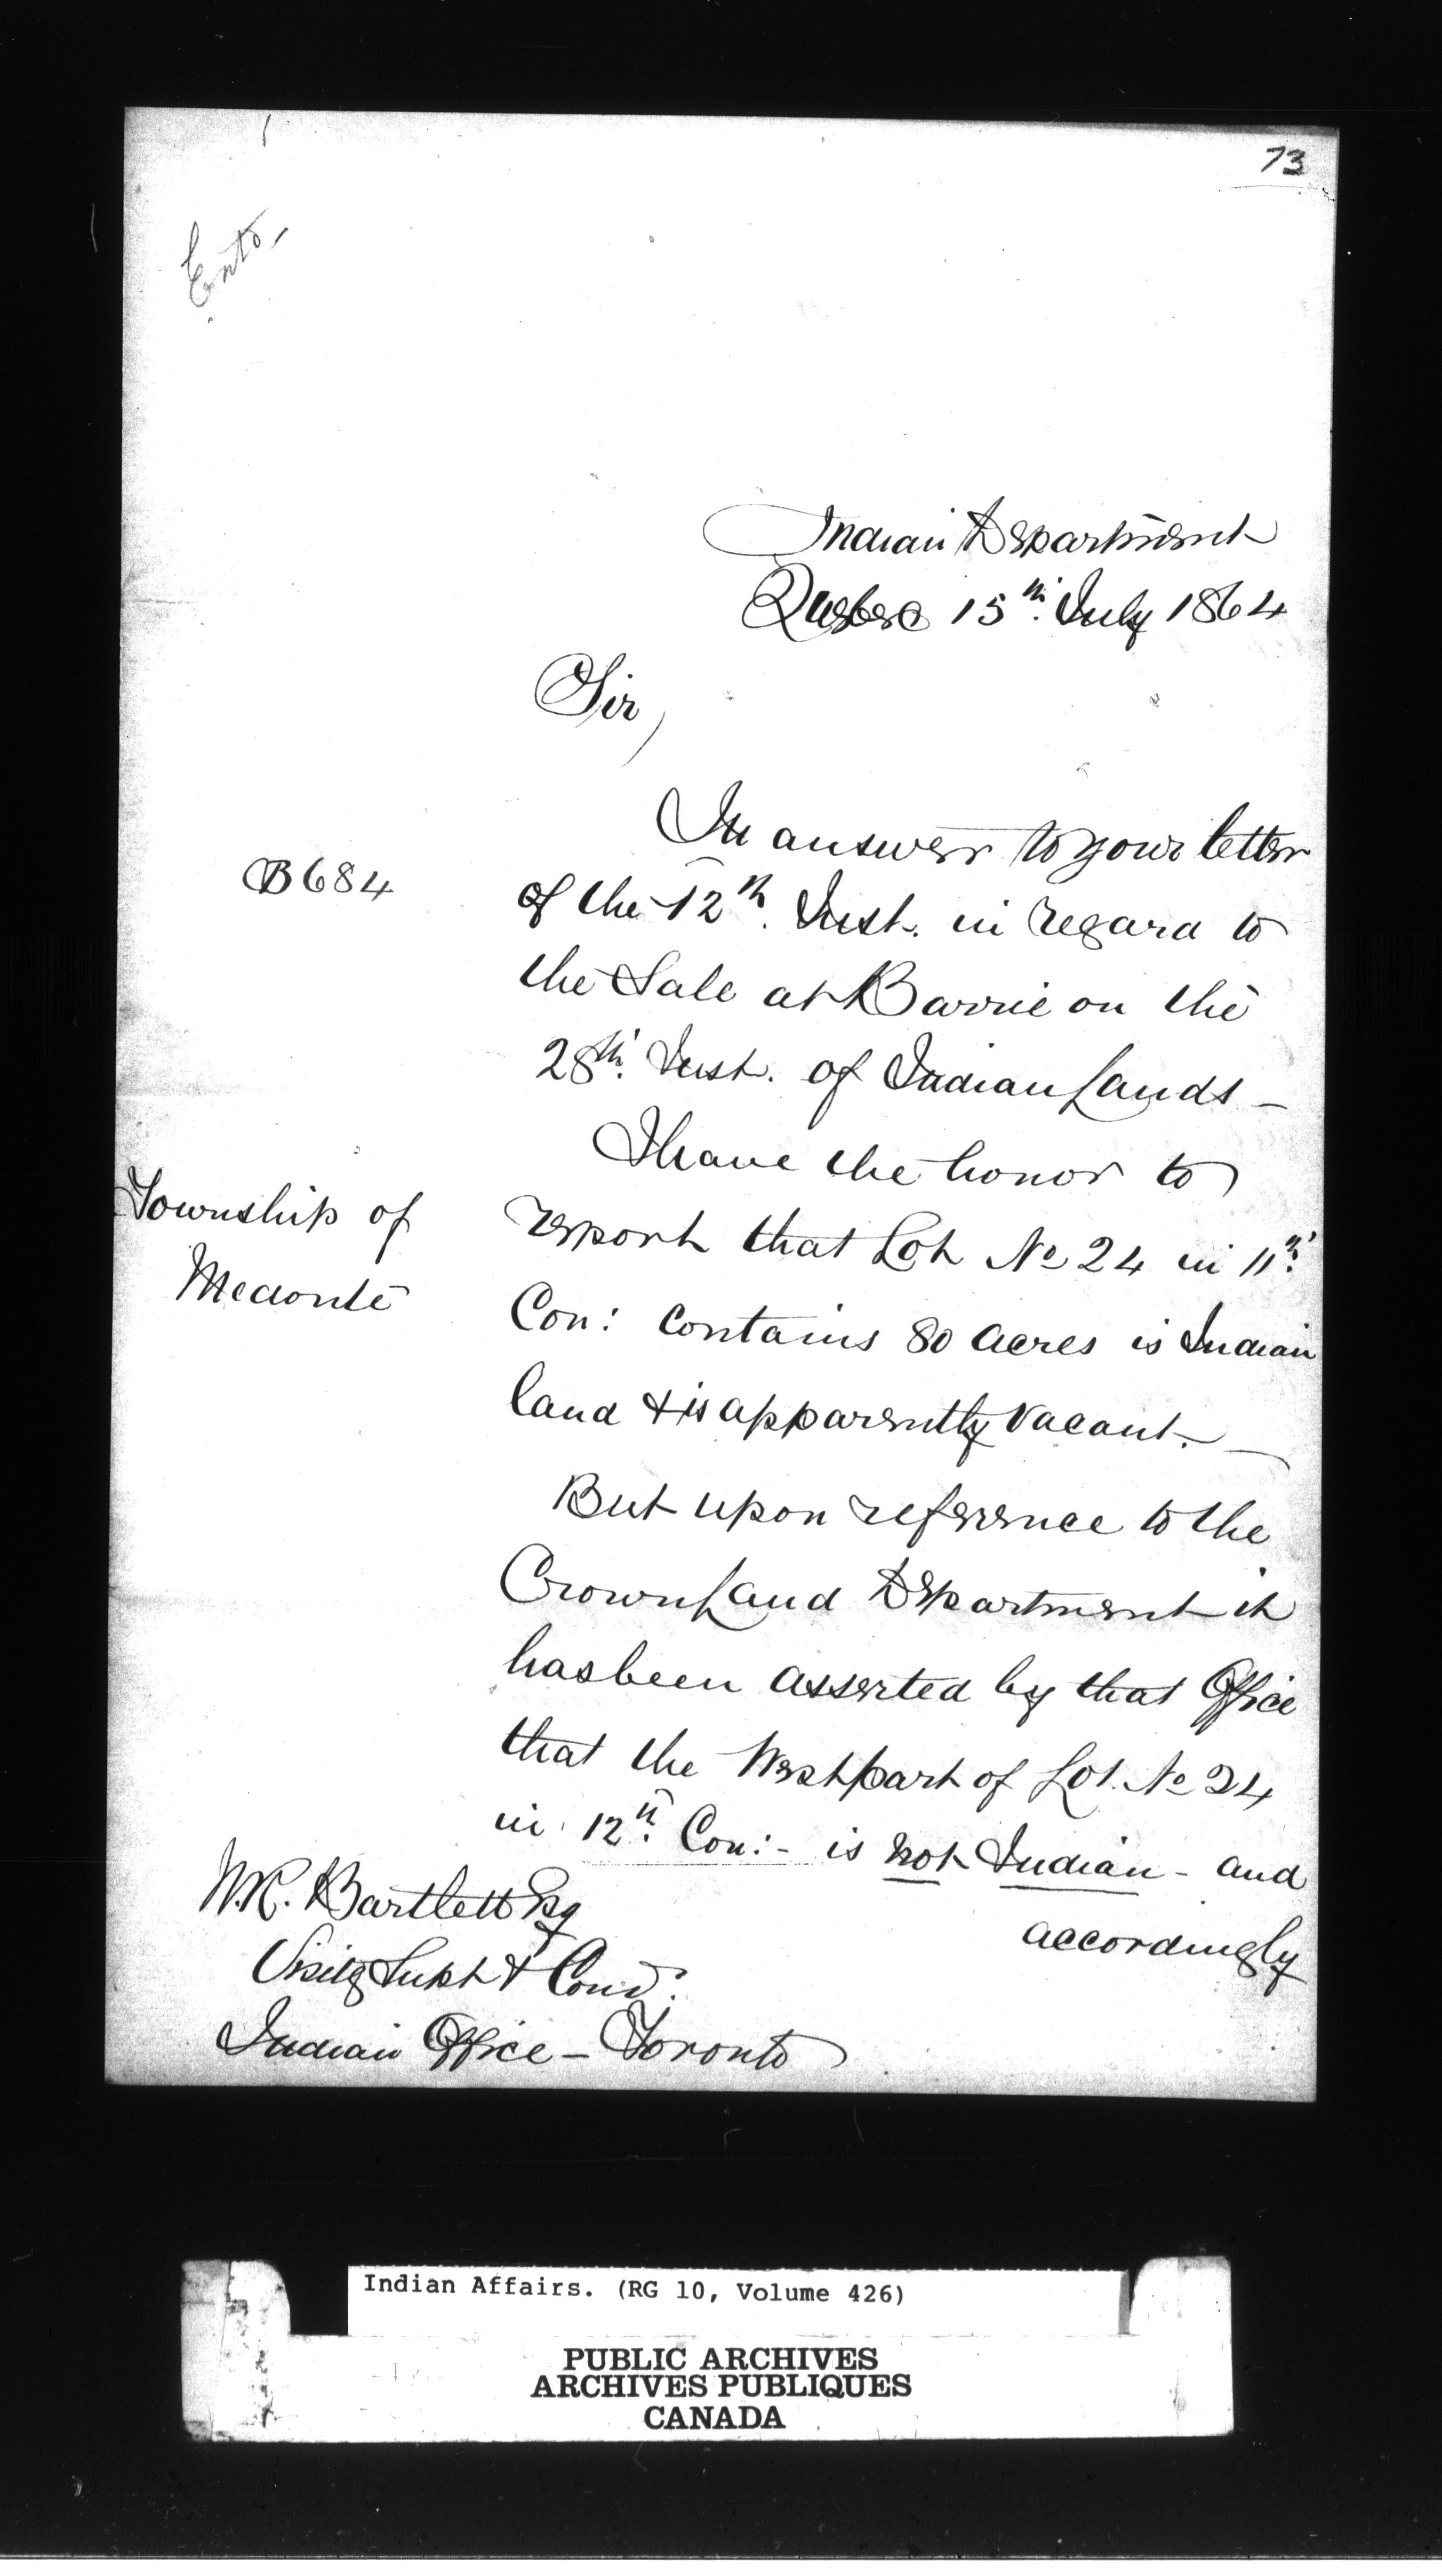 73
Entd,
Indian Department
Quebec 15th. July 1864
Sir,
In answer to your letter
B684
of the 12th. Inst. in regard to
the Sale at Barrie on the
28th. Inst. of Indian Lands -
I have the honor to
Township of
Medonte
report that Lot No 24 in 11th.
Con: contains 80 acres is Indian
land & is apparently vacant. -
But upon reference to the
Crown Land Department it
has been asserted by that Office
that the West part of Lot. No 24
in 12th. Con:- is not Indian - and
accordingly
W.R. Bartlett Esq
Visitg Supt &
Indian Office - Toronto
Indian Affairs. (RG 10, Volume 426)
PUBLIC ARCHIVES
ARCHIVES PUBLIQUES
CANADA